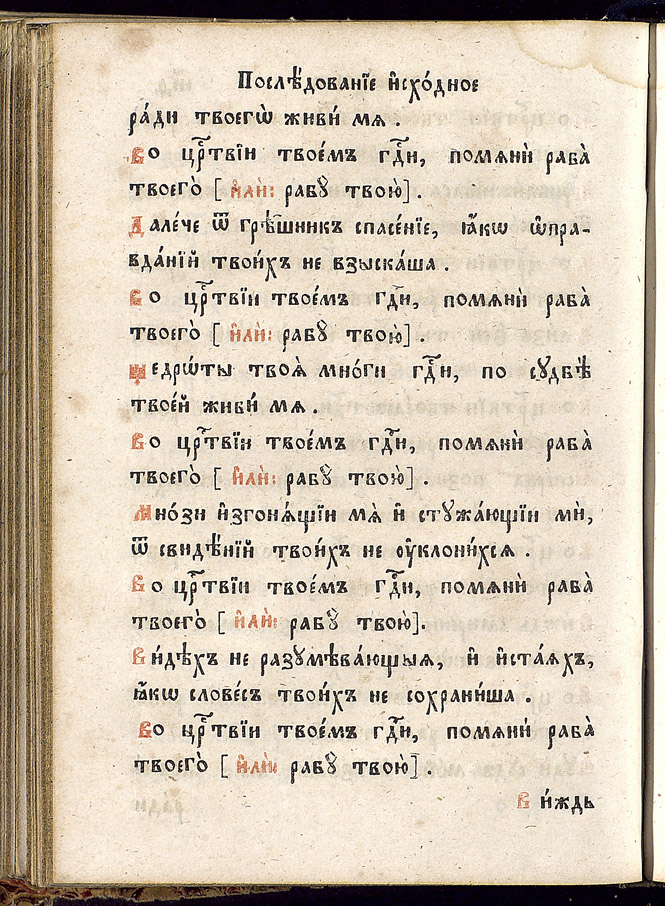 Послѣ́дованїе и҆схо́дное
ра́ди твоегѡ̀ живи́ мѧ .
Во црⷭ҇твїи твое́мъ гдⷭ҇и, помѧнѝ раба̀
твоего̀ [ и҆лѝ: рабꙋ̀ твою̀] .
Дале́че ѿ грѣ́шникъ спасе́нїе, ꙗ҆́кѡ ѡ҆пра-
вда́нїй твои́хъ не взыска́ша .
Во црⷭ҇твїи твое́мъ гдⷭ҇и, помѧнѝ раба̀
твоего̀ [ и҆лѝ: рабꙋ̀ твою̀] .
Щедрѡ́ты твоѧ̀ мнѡ́ги гдⷭ҇и, по сꙋдбѣ̀
твое́й живи́ мѧ .
Во црⷭ҇твїи твое́мъ гдⷭ҇и, помѧнѝ раба̀
твоего̀ [ и҆лѝ: рабꙋ̀ твою̀] .
Мно́зи и҆згонѧ́щїи мѧ̀ и҆ стꙋжа́ющїи мѝ,
ѿ свидѣ́нїй твои́хъ не ᲂу҆клони́хсѧ .
Во црⷭ҇твїи твое́мъ гдⷭ҇и, помѧнѝ раба̀
твоего̀ [ и҆лѝ: рабꙋ̀ твою̀].
Ви́дѣхъ не разꙋмѣва́ющыѧ, и҆ и҆ста́ѧхъ,
ꙗ҆́кѡ слове́съ твои́хъ не сохрани́ша .
Во црⷭ҇твїи твое́мъ гдⷭ҇и, помѧнѝ раба̀
твоего̀ [ и҆лѝ: рабꙋ̀ твою̀] .
Ви́ждь